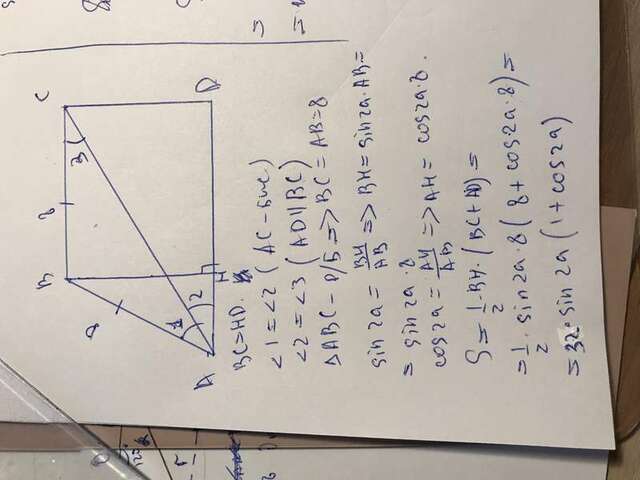 B 8 C
8
3
1
2
A H D
BC=HD.
∠1=∠2 (AC-бис)
∠2=∠3 (AD||BC)
△ABC-р/б=>BC=AB=8
sin2a=BH/AB=>BH=sin2a·AB=
=sin2a·8
cos2a=AH/AB=>AH=cos2a·8.
S=1/2·BH·(BC+AD)=
=1/2·sin2a·8(8+cos2a·8)=
=32·sin2a(1+cos2a)
120°